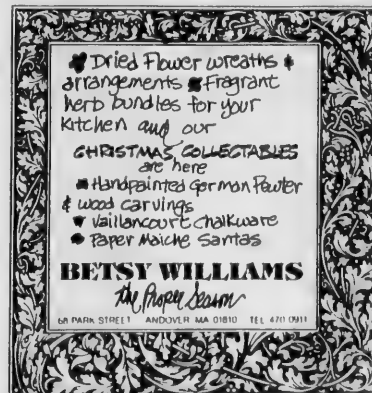 Dried Flower wreaths &
arrangements Fragrant
herb bundles for your
kitchen and our
CHRISTMAS COLLECTABLES
are here
Handpainted German Pewter
& wood carvings
Vaillancourt Chalkware
Paper Maiche Santas
BETSY WILLIAMS
The Proper Season
68 PARK STREET ANDOVER MA 01810 TEL 470 0911